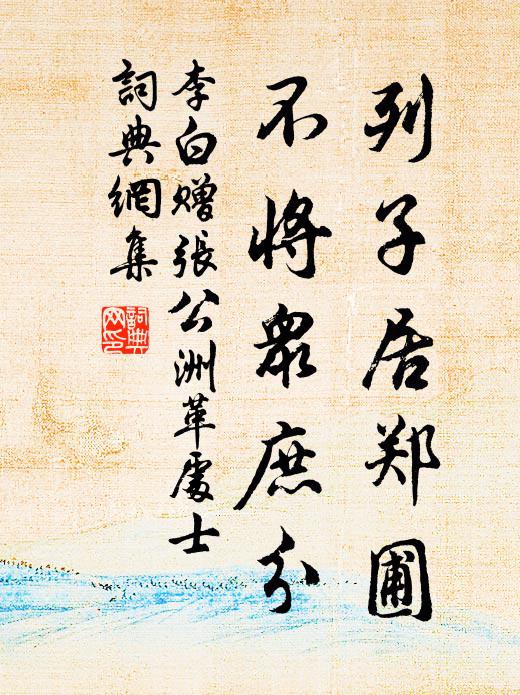 列子居郑圃
不将眾庶分
李白赠張公洲革處士
詞典網集
詞典网印